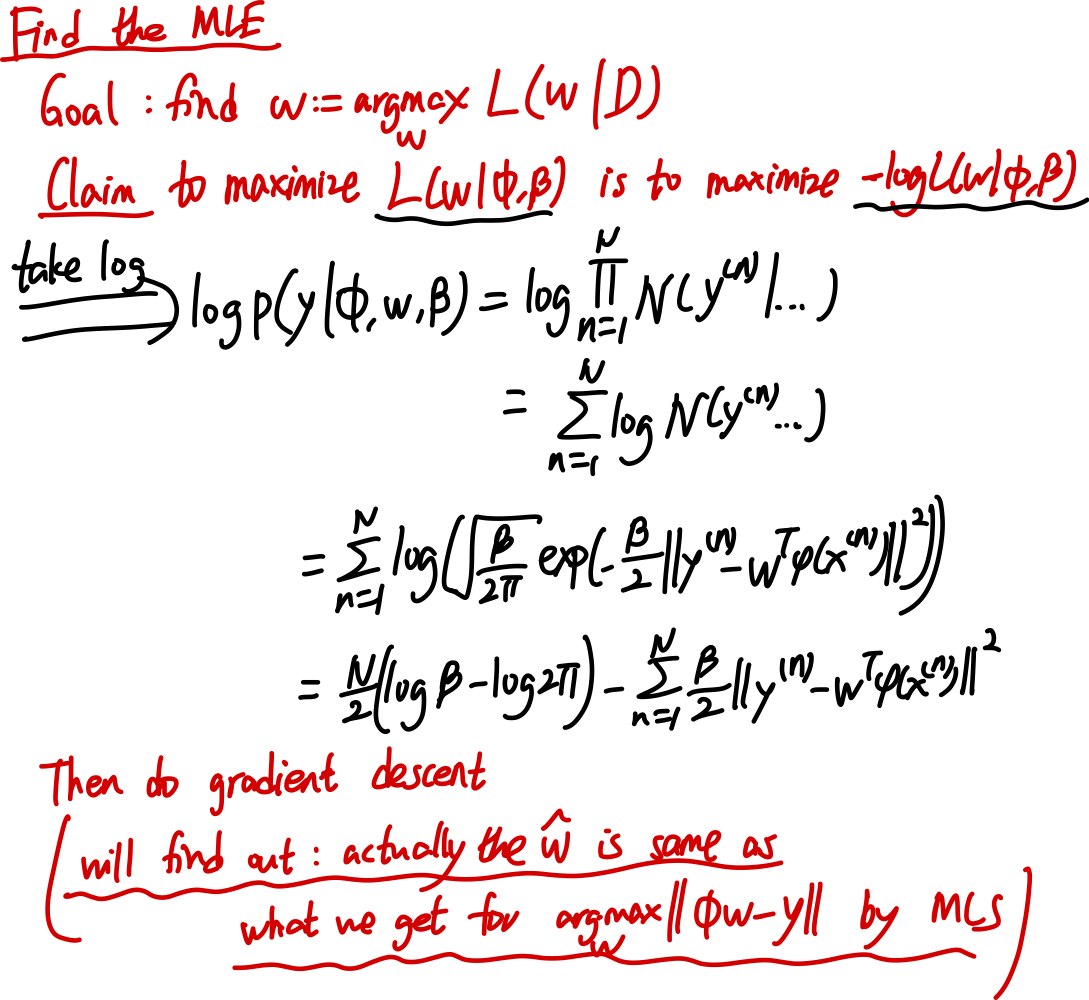 Find the MLE
Goal : find w := argmax_w L(w|D)
Claim to maximize L(w|ϕ,β) is to maximize -logL(w|ϕ,β)
take log log p(y|ϕ,w,β) = log ∏_{n=1}^{N} N(y^{(n)}|...)
= ∑_{n=1}^{N} log N(y^{(n)}...)
= ∑_{n=1}^{N} log(√(β/2π) exp(-β/2 ||y^{(n)} - w^T φ(x^{(n)})||^2))
= N/2 (log β - log 2π) - ∑_{n=1}^{N} β/2 ||y^{(n)} - w^T φ(x^{(n)})||^2
Then do gradient descent
(will find out : actually the ŵ is same as
what we get for argmax_w ||ϕw - y|| by MLS)